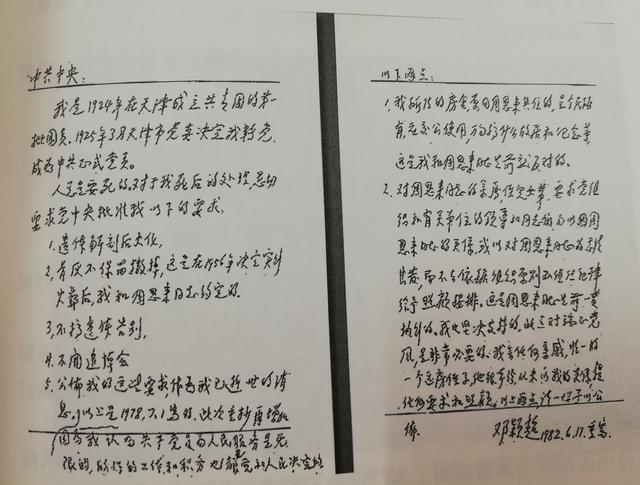 中共中央：
我是1924年在天津成立共青团的第一
批团员。1925年3月天津市党委决定我转党，
成为中共正式党员。
人总是要死的。对于我死后的处理，恳切
要求党中央批准我以下的要求：
1. 遗体解剖后火化。
2. 骨灰不保留，撒掉，这是在1956年决定实行
火葬后，我和周恩来同志约定的。
3. 不搞遗体告别。
4. 不开追悼会
5. 公布我的这些要求，作为我已逝世的消
息。以上是1978.7.1写的。此次重抄再增加
因为我认为共产党员为人民服务是无
限的，所作的工作和职务也都是党和人民决定的
以下两点：
1. 我所住的房舍，原同周恩来共住的，是全民所
有，应交公使用，万勿搞什么故居和纪念等，
这是我和周恩来同志生前就反对的。
2. 对周恩来同志的亲属，侄儿女辈，要求党组
织和有关单位的领导和同志们，勿以因周
恩来同志的关系，或以对周恩来同志的感情
出发，而不去依据组织原则和组织纪律
给予照顾安排。这是周恩来同志生前一贯
执行的。我也坚决支持的。此点对端正党
风，是非常必要的。我无任何亲戚，唯一的
一个远房侄子，他很本分，从未以我的关系提
任何要求和照顾。以上两点请一并予以公
布。
邓颖超 1982.6.17.重写